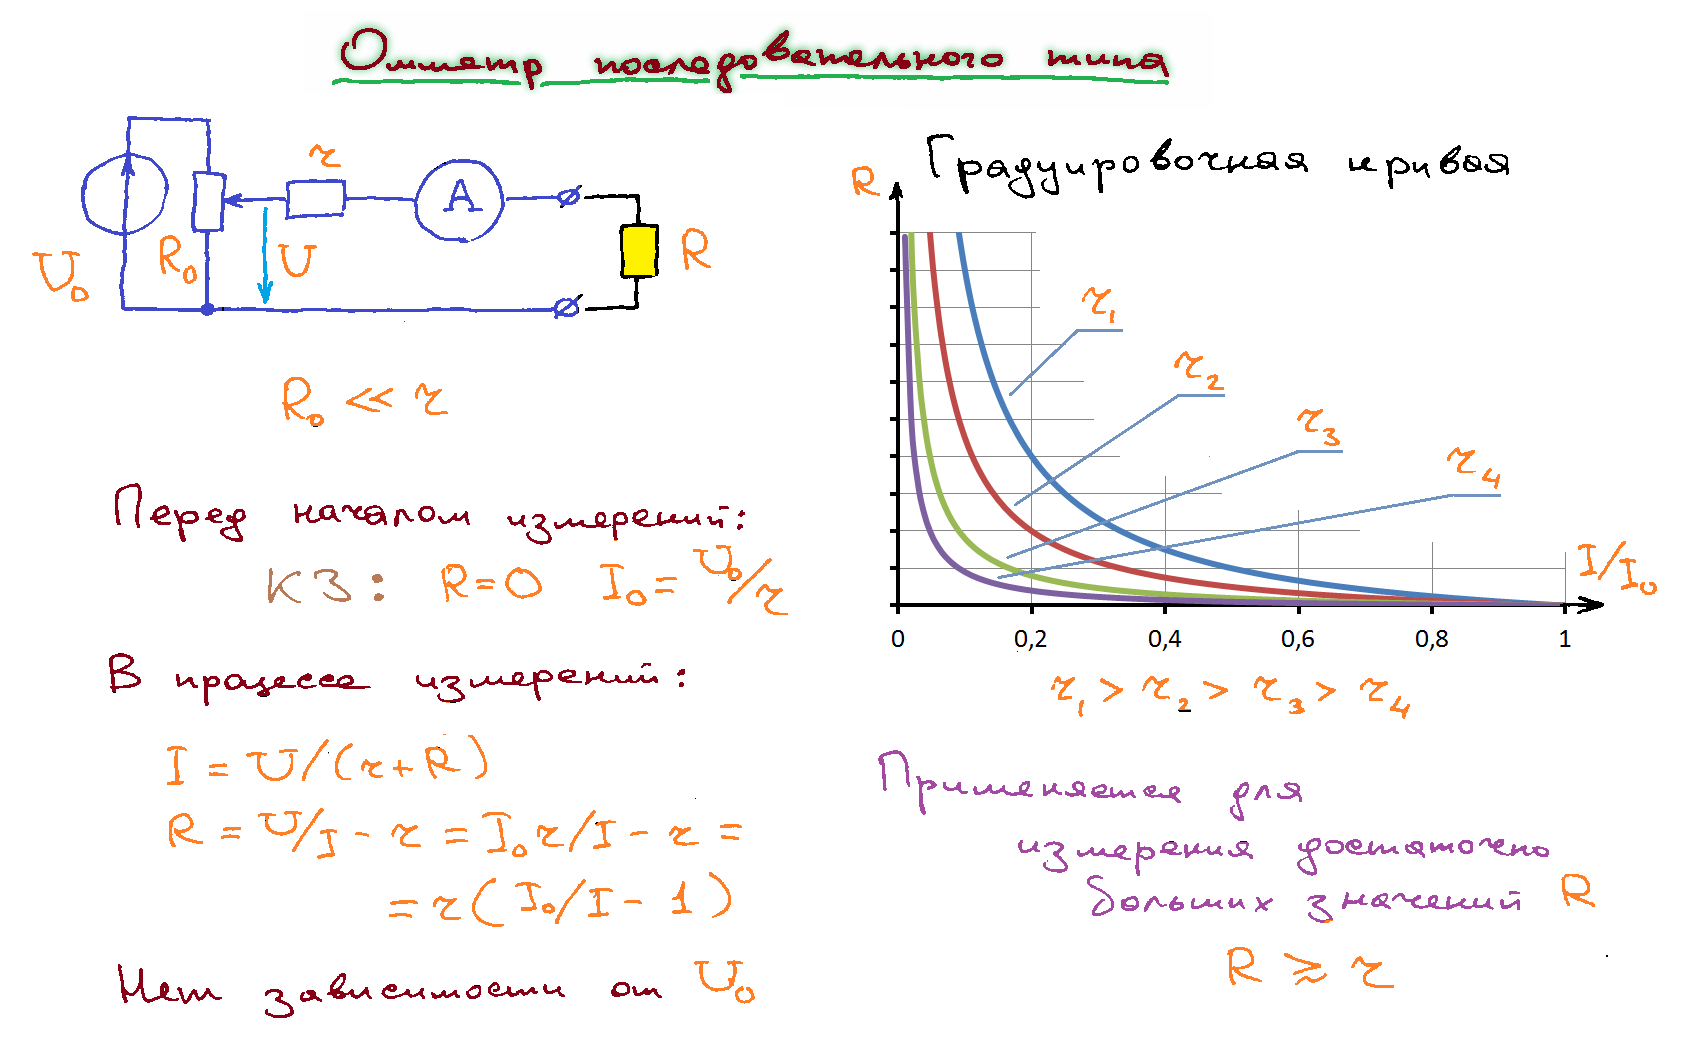 Омметр последовательного типа
U₀
R₀
U
r
A
R
R₀ << r
Перед началом измерений:
КЗ: R=0 I₀=U₀/r
В процессе измерений:
I = U/(r+R)
R = U/I - r = I₀r/I - r =
= r(I₀/I - 1)
Нет зависимости от U₀
Градуировочная кривая
R
r₁
r₂
r₃
r₄
I/I₀
0 0,2 0,4 0,6 0,8 1
r₁ > r₂ > r₃ > r₄
Применяется для
измерения достаточно
больших значений R
R ⪆ r